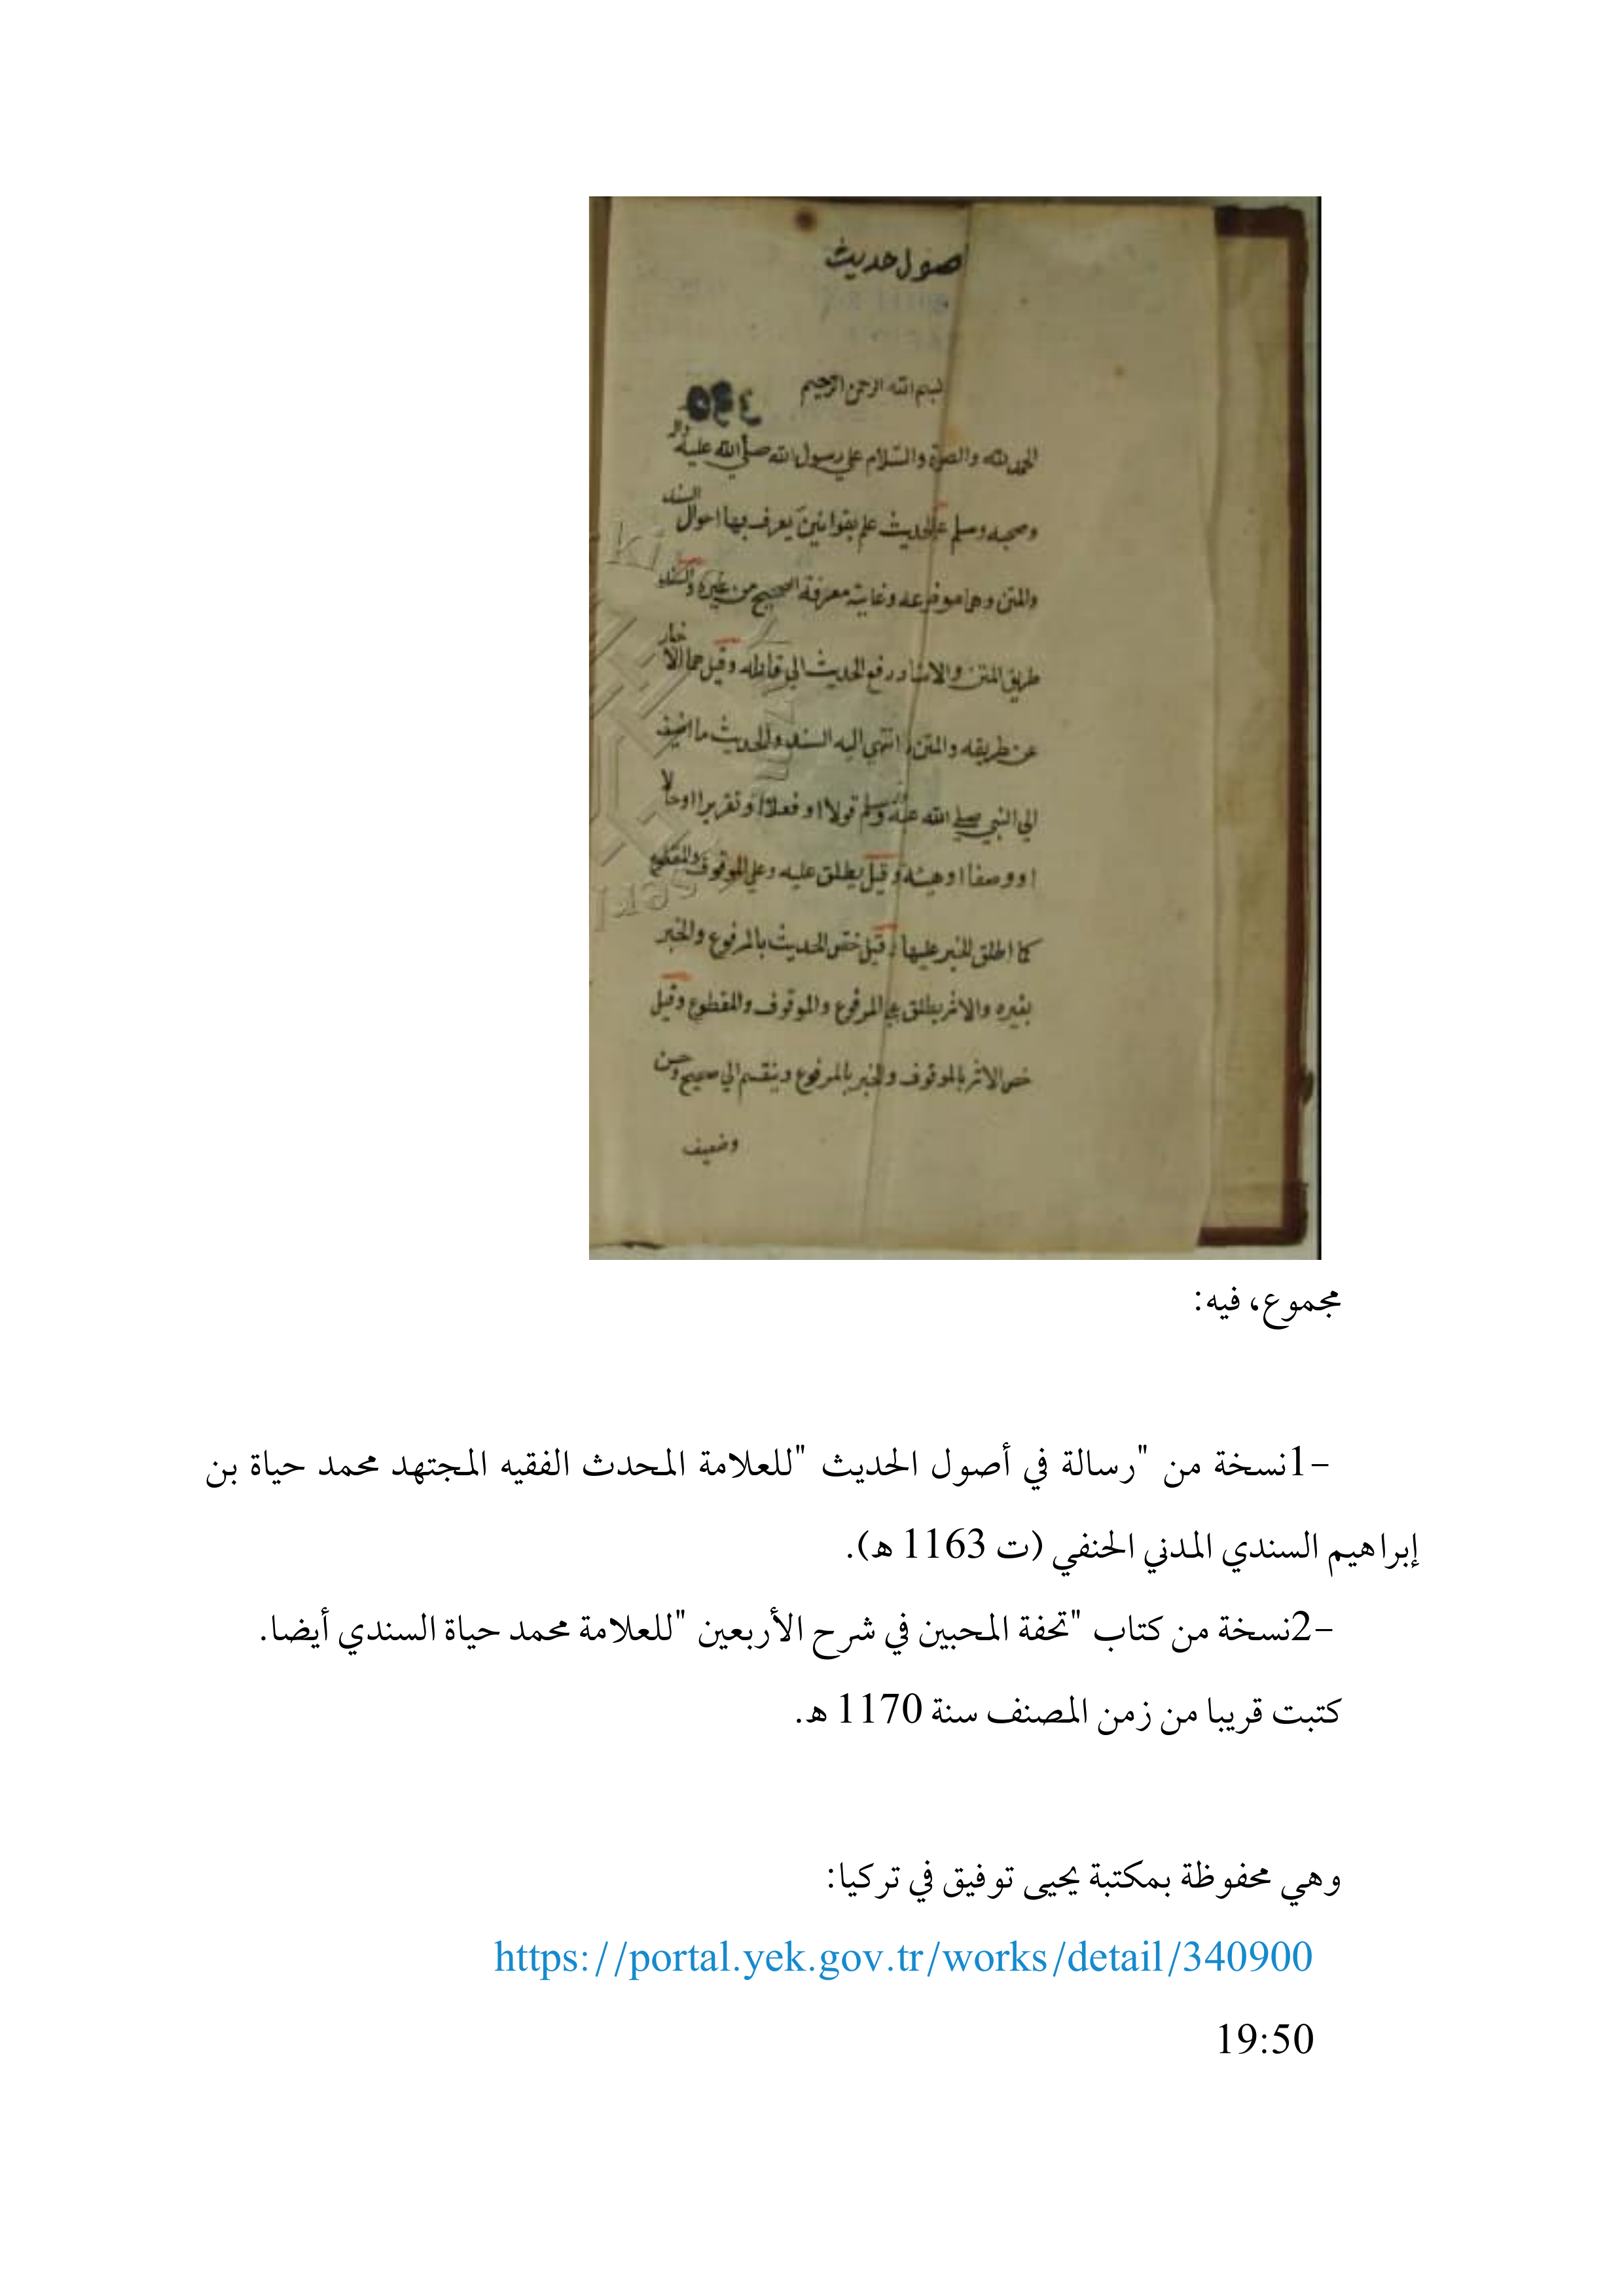 صول حديث
بسم الله الرحمن الرحيم
الحمد لله والصلوة والسلام علي رسول الله صلي الله عليه واله
وصحبه وسلم علم الحديث علم بقوانين يعرف بها احوال السند
والمتن وهما موضوعه وغايته معرفة الصحيح من غيره والسند
طريق المتن والاسناد رفع الحديث الي قائله وقيل هما الاخبار
عن طريقه والمتن ما انتهي اليه السند والحديث ما اضيف
الي النبي صلي الله عليه وسلم قولا او فعلا او تقريرا او حالا
او وصفا او هيئة وقيل يطلق عليه وعلي الموقوف والمقطوع
كما اطلق الخبر عليها وقيل خص الحديث بالمرفوع والخبر
بغيره والاثر يطلق علي المرفوع والموقوف والمقطوع وقيل
خص الاثر بالموقوف والخبر بالمرفوع وينقسم الي صحيح وحسن
وضعيف
مجموع، فيه:
-1نسخة من "رسالة في أصول الحديث "للعلامة المحدث الفقيه المجتهد محمد حياة بن
إبراهيم السندي المدني الحنفي (ت 1163 ه).
-2نسخة من كتاب "تحفة المحبين في شرح الأربعين "للعلامة محمد حياة السندي أيضا.
كتبت قريبا من زمن المصنف سنة 1170 ه.
وهي محفوظة بمكتبة يحيى توفيق في تركيا:
https://portal.yek.gov.tr/works/detail/340900
19:50